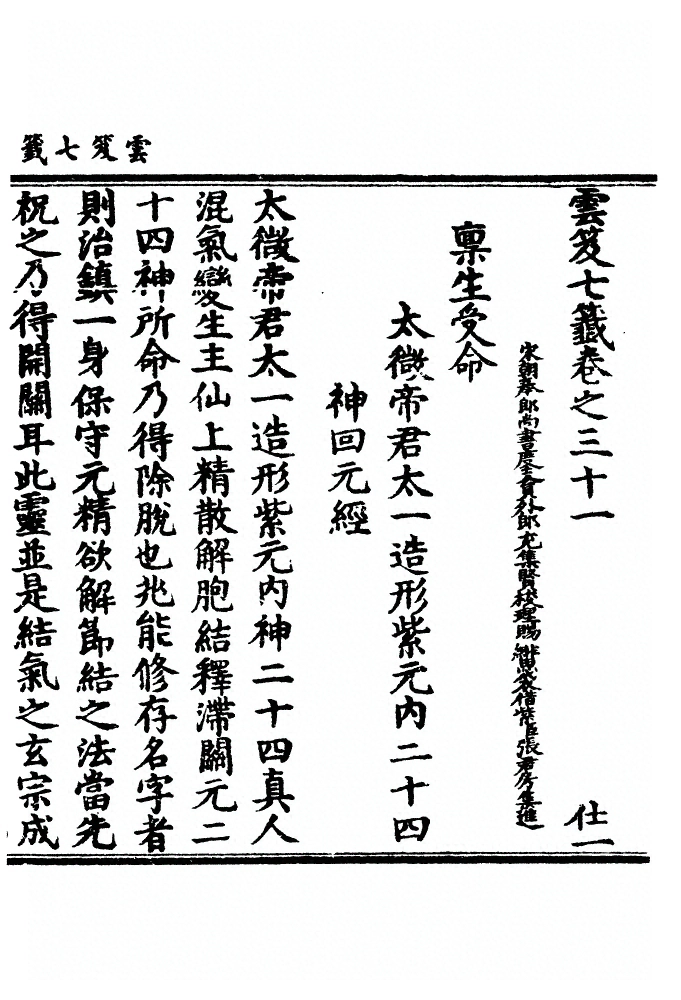 雲笈七籤
雲笈七籤卷之三十一 仕一
宋朝奉郎尚書度支員外郎充集賢校理賜緋魚袋借紫臣張君房集進
禀生受命
太微帝君太一造形紫元内二十四
神回元經
太微帝君太一造形紫元内神二十四真人
混氣變生主仙上精散解胞結釋滯關元二
十四神所命乃得除脫也兆能修存名字者
則治鎮一身保守元精欲解節結之法當先
柷之乃得開關耳此靈並是結氣之玄宗成